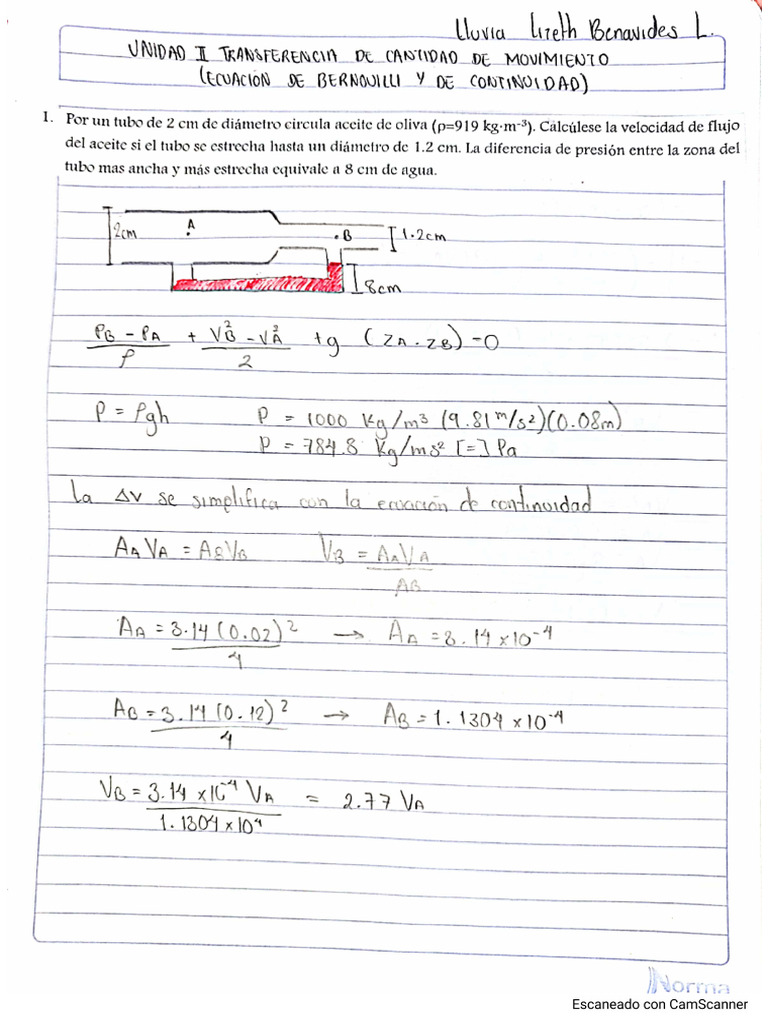 Lluvia Lizeth Benavides L.
UNIDAD II TRANSFERENCIA DE CANTIDAD DE MOVIMIENTO
(ECUACIÓN DE BERNOUILLI Y DE CONTINUIDAD)
1. Por un tubo de 2 cm de diámetro circula aceite de oliva (ρ=919 kg·m⁻³). Calcúlese la velocidad de flujo
del aceite si el tubo se estrecha hasta un diámetro de 1.2 cm. La diferencia de presión entre la zona del
tubo mas ancha y más estrecha equivale a 8 cm de agua.
2cm A B 1.2cm
8cm
(PB - PA)/ρ + (VB² - VA²)/2 + g (ZA - ZB) = 0
P = ρgh P = 1000 Kg/m³ (9.81 m/s²)(0.08m)
P = 784.8 Kg/ms² [=] Pa
La ΔV se simplifica con la ecuación de continuidad
AA VA = AB VB VB = AA VA / AB
AA = 3.14 (0.02)² / 4 → AA = 3.14 x10⁻⁴
AB = 3.14 (0.12)² / 4 → AB = 1.1304 x10⁻⁴
VB = 3.14 x10⁻⁴ VA / 1.1304 x10⁴ = 2.77 VA
Norma
Escaneado con CamScanner